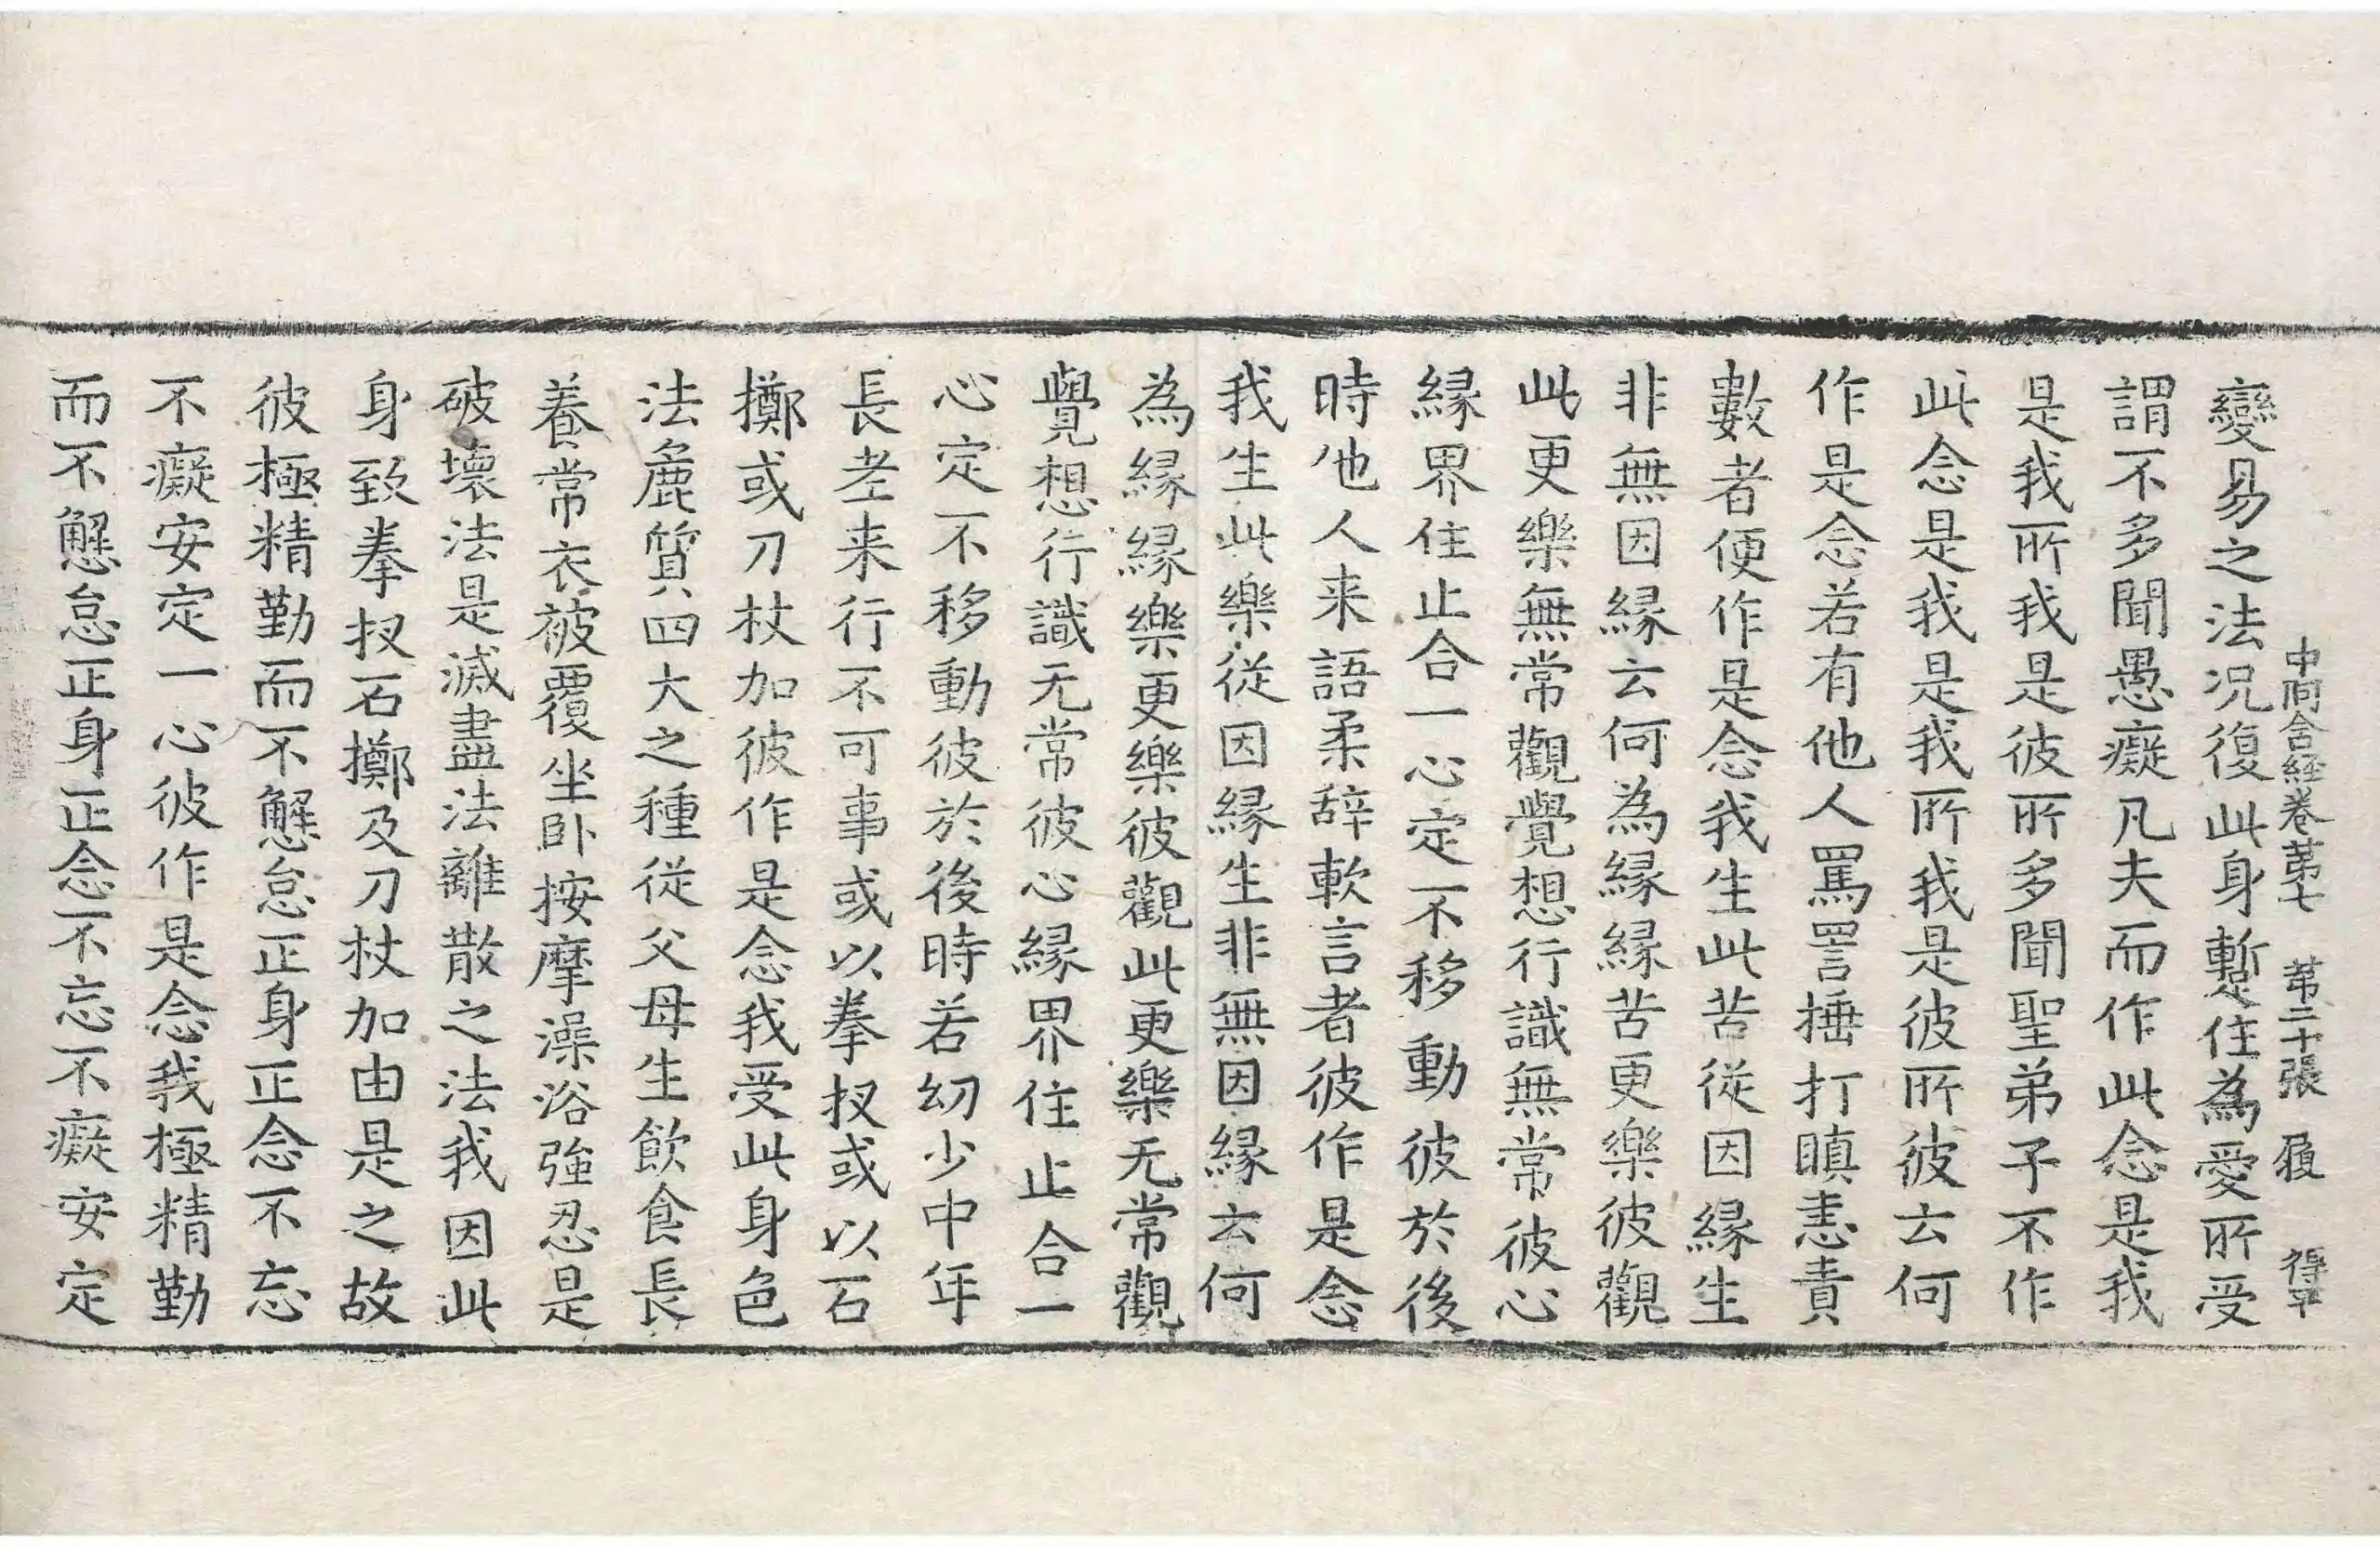 中阿含経卷苐七 苐二十張 履 得平
變易之法况復此身暫住為愛所受
謂不多聞愚癡凡夫而作此念是我
是我所我是彼所多聞聖弟子不作
此念是我是我所我是彼所彼云何
作是念若有他人罵詈捶打瞋恚責
數者便作是念我生此苦從因縁生
非無因縁云何為縁縁苦更樂彼觀
此更樂無常觀覺想行識無常彼心
縁界住止合一心定不移動彼於後
時他人来語柔辞軟言者彼作是念
我生此樂從因縁生非無因縁云何
為縁縁樂更樂彼觀此更樂无常觀
覺想行識无常彼心縁界住止合一
心定不移動彼於後時若幼少中年
長老来行不可事或以拳扠或以石
擲或刀杖加彼作是念我受此身色
法麁質四大之種從父母生飲食長
養常衣被覆坐卧按摩澡浴強忍是
破壞法是滅盡法離散之法我因此
身致拳扠石擲及刀杖加由是之故
彼極精勤而不懈怠正身正念不忘
不癡安定一心彼作是念我極精勤
而不懈怠正身正念不忘不癡安定